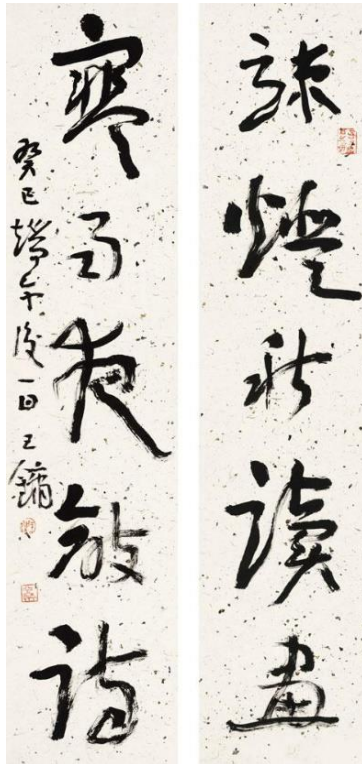 疎燈秋讀畫
寒雨夜敲詩
癸巳端午後一日王鏞